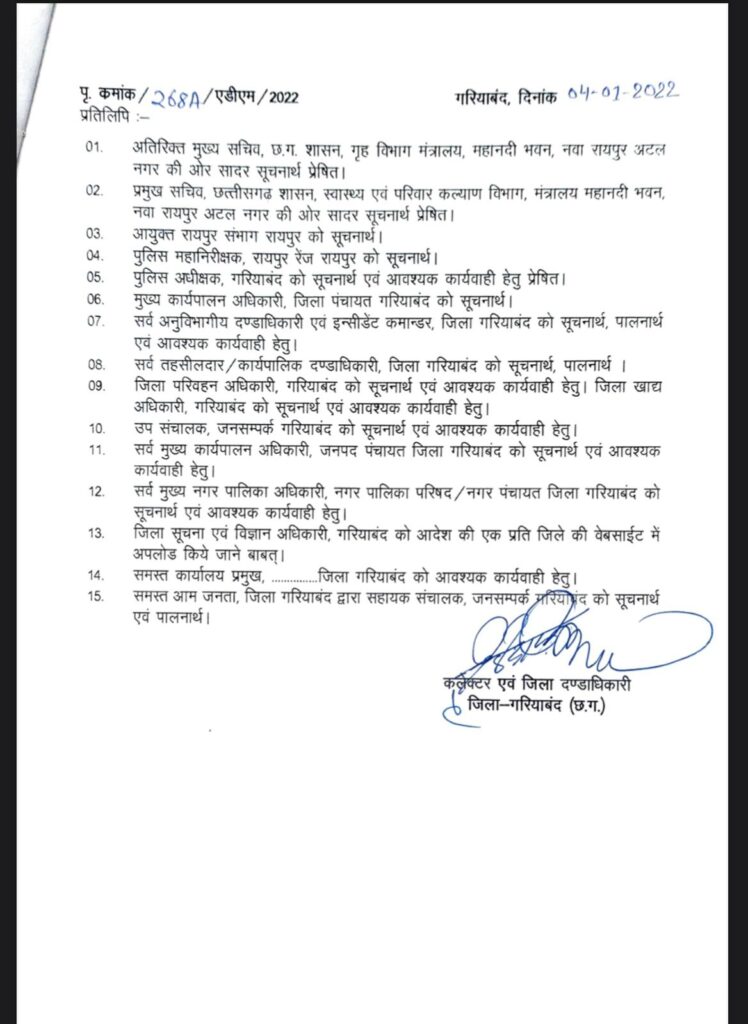 पृ. कमांक/268A/एडीएम/2022 गरियाबंद, दिनांक 04-01-2022
प्रतिलिपि :–
01. अतिरिक्त मुख्य सचिव, छ.ग. शासन, गृह विभाग मंत्रालय, महानदी भवन, नवा रायपुर अटल
नगर की ओर सादर सूचनार्थ प्रेषित।
02. प्रमुख सचिव, छत्तीसगढ शासन, स्वास्थ्य एवं परिवार कल्याण विभाग, मंत्रालय महानदी भवन,
नवा रायपुर अटल नगर की ओर सादर सूचनार्थ प्रेषित।
03. आयुक्त रायपुर संभाग रायपुर को सूचनार्थ।
04. पुलिस महानिरीक्षक, रायपुर रेंज रायपुर को सूचनार्थ।
05. पुलिस अधीक्षक, गरियाबंद को सूचनार्थ एवं आवश्यक कार्यवाही हेतु प्रेषित।
06. मुख्य कार्यपालन अधिकारी, जिला पंचायत गरियाबंद को सूचनार्थ।
07. सर्व अनुविभागीय दण्डाधिकारी एवं इन्सीडेंट कमान्डर, जिला गरियाबंद को सूचनार्थ, पालनार्थ
एवं आवश्यक कार्यवाही हेतु।
08. सर्व तहसीलदार/कार्यपालिक दण्डाधिकारी, जिला गरियाबंद को सूचनार्थ, पालनार्थ ।
09. जिला परिवहन अधिकारी, गरियाबंद को सूचनार्थ एवं आवश्यक कार्यवाही हेतु। जिला खाद्य
अधिकारी, गरियाबंद को सूचनार्थ एवं आवश्यक कार्यवाही हेतु।
10. उप संचालक, जनसम्पर्क गरियाबंद को सूचनार्थ एवं आवश्यक कार्यवाही हेतु।
11. सर्व मुख्य कार्यपालन अधिकारी, जनपद पंचायत जिला गरियाबंद को सूचनार्थ एवं आवश्यक
कार्यवाही हेतु।
12. सर्व मुख्य नगर पालिका अधिकारी, नगर पालिका परिषद/नगर पंचायत जिला गरियाबंद को
सूचनार्थ एवं आवश्यक कार्यवाही हेतु।
13. जिला सूचना एवं विज्ञान अधिकारी, गरियाबंद को आदेश की एक प्रति जिले की वेबसाईट में
अपलोड किये जाने बाबत्।
14. समस्त कार्यालय प्रमुख, ...............जिला गरियाबंद को आवश्यक कार्यवाही हेतु।
15. समस्त आम जनता, जिला गरियाबंद द्वारा सहायक संचालक, जनसम्पर्क गरियाबंद को सूचनार्थ
एवं पालनार्थ।
कलेक्टर एवं जिला दण्डाधिकारी
जिला–गरियाबंद (छ.ग.)